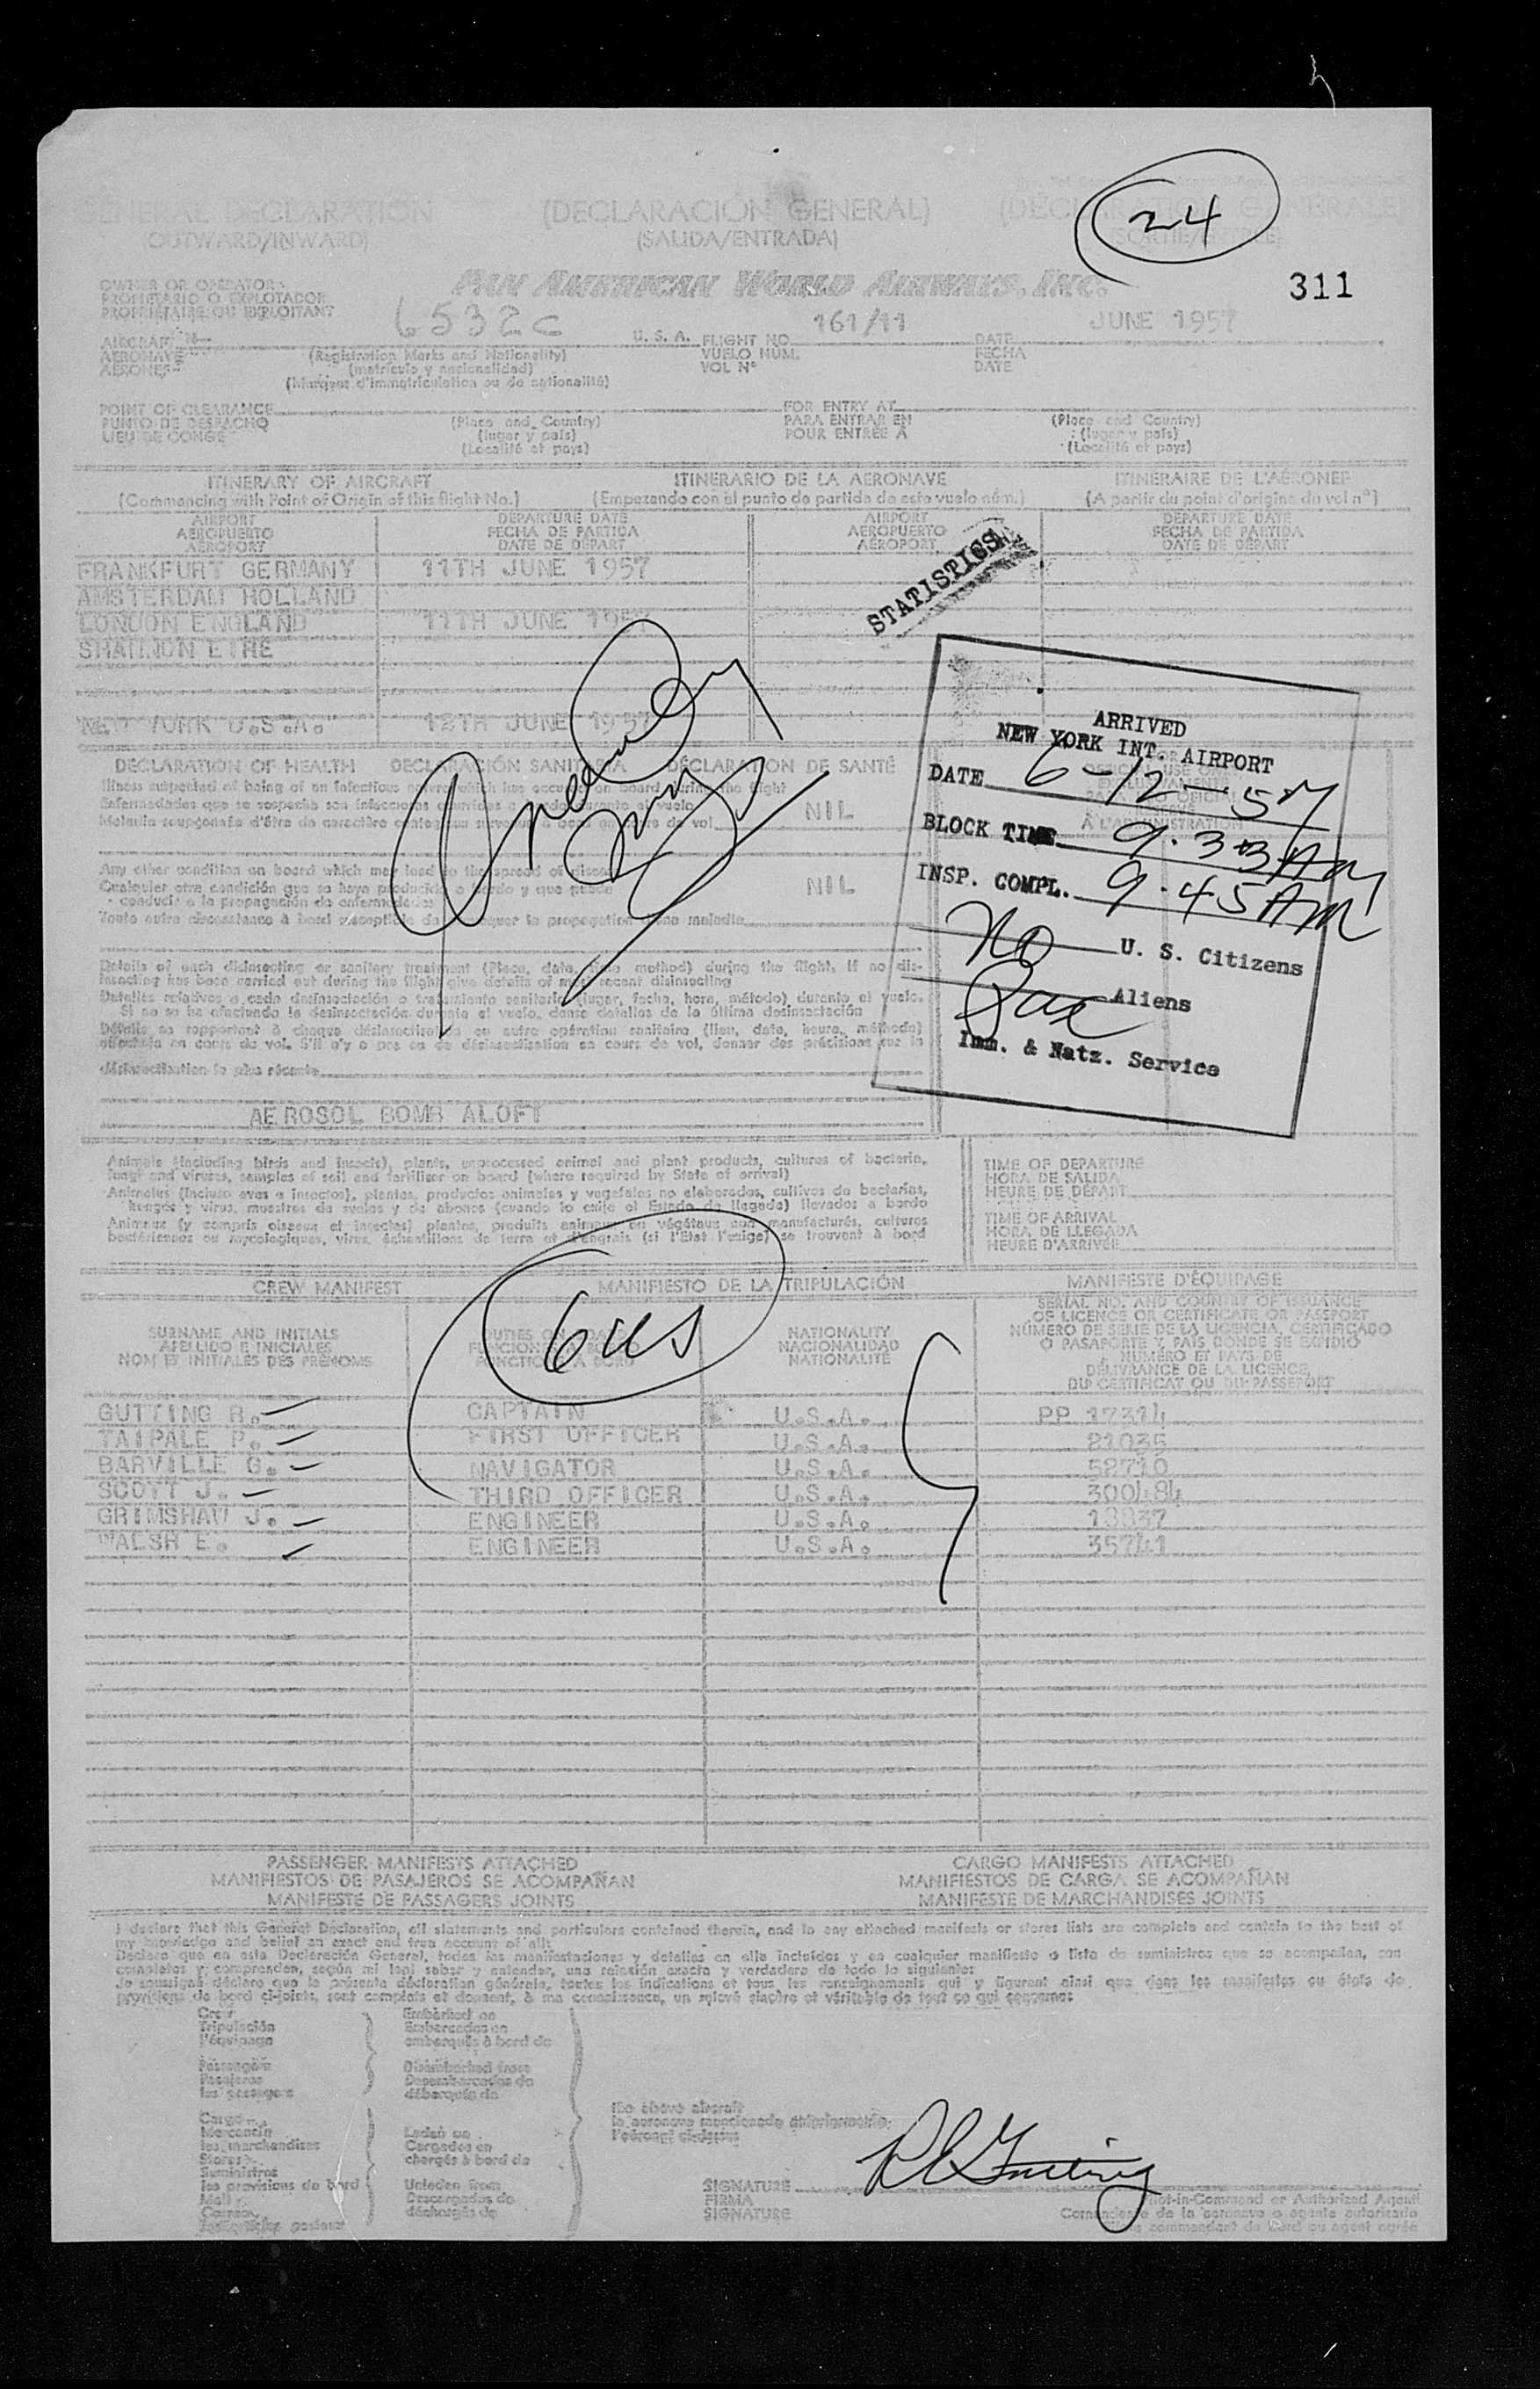 24
GENERAL DECLARATION (DECLARACIÓN GENERAL) (DÉCLARATION GÉNÉRALE)
(OUTWARD/INWARD) (SALIDA/ENTRADA) (SORTIE/ENTRÉE)
311
OWNER OR OPERATOR
PROPIETARIO O EXPLOTADOR
PROPRIÉTAIRE OU EXPLOITANT
PAN AMERICAN WORLD AIRWAYS, INC.
AIRCRAFT N— 6532C U. S. A. FLIGHT NO. 161/11 DATE JUNE 1957
AERONAVE (Registration Marks and Nationality) VUELO NÚM. FECHA
AÉRONEF (matrícula y nacionalidad) VOL Nº DATE
(Marques d'immatriculation ou de nationalité)
POINT OF CLEARANCE FOR ENTRY AT
PUNTO DE DESPACHO (Place and Country) PARA ENTRAR EN (Place and Country)
LIEU DE CONGÉ (lugar y país) POUR ENTRÉE À (lugar y país)
(Localité et pays) (Localité et pays)
ITINERARY OF AIRCRAFT ITINERARIO DE LA AERONAVE ITINÉRAIRE DE L'AÉRONEF
(Commencing with Point of Origin of this flight No.) (Empezando con el punto de partida de este vuelo núm.) (A partir du point d'origine du vol nº)
AIRPORT DEPARTURE DATE AIRPORT DEPARTURE DATE
AEROPUERTO FECHA DE PARTIDA AEROPUERTO FECHA DE PARTIDA
AÉROPORT DATE DE DÉPART AÉROPORT DATE DE DÉPART
FRANKFURT GERMANY 11TH JUNE 1957
AMSTERDAM HOLLAND
LONDON ENGLAND 11TH JUNE 1957
SHANNON EIRE
NEW YORK U.S.A. 12TH JUNE 1957
STATISTICS
ARRIVED
NEW YORK INT. AIRPORT
DATE 6-12-57
BLOCK TIME 9.33 AM
INSP. COMPL. 9.45 AM
No U. S. Citizens
Aliens
Imm. & Natz. Service
DECLARATION OF HEALTH DECLARACIÓN SANITARIA DÉCLARATION DE SANTÉ
Illness suspected of being of an infectious nature which has occurred on board during the flight
Enfermedades que se sospecha son infecciosas ocurridas a bordo durante el vuelo
NIL
Any other condition on board which may lead to the spread of disease
Cualquier otra condición que se haya producido a bordo y que pueda
conducir a la propagación de enfermedades
NIL
Details of each disinsecting or sanitary treatment (Place, date, time method) during the flight. If no dis-
insecting has been carried out during the flight give details of most recent disinsecting
Detalles relativos a cada desinsectación o tratamiento sanitario (lugar, fecha, hora, método) durante el vuelo.
Si no se ha efectuado la desinsectación durante el vuelo, dense detalles de la última desinsectación
désinsectisation la plus récente
AEROSOL BOMB ALOFT
Animals (including birds and insects), plants, unprocessed animal and plant products, cultures of bacteria,
fungi and viruses, samples of soil and fertiliser on board (where required by State of arrival)
Animales (incluso aves e insectos), plantas, productos animales y vegetales no elaborados, cultivos de bacterias,
hongos y virus, muestras de suelos y de abonos (cuando lo exija el Estado de llegada) llevados a bordo
Animaux (y compris oiseaux et insectes) plantes, produits animaux ou végétaux non manufacturés, cultures
bactériennes ou mycologiques, virus, échantillons de terre et d'engrais (si l'Etat l'exige) se trouvant à bord
TIME OF DEPARTURE
HORA DE SALIDA
HEURE DE DÉPART
TIME OF ARRIVAL
HORA DE LLEGADA
HEURE D'ARRIVÉE
CREW MANIFEST MANIFIESTO DE LA TRIPULACIÓN MANIFESTE D'ÉQUIPAGE
6 US
SURNAME AND INITIALS
APELLIDO E INICIALES
NOM ET INITIALES DES PRÉNOMS
NATIONALITY
NACIONALIDAD
NATIONALITÉ
SERIAL NO. AND COUNTRY OF ISSUANCE
OF LICENCE OR CERTIFICATE OR PASSPORT
NÚMERO DE SERIE DE LA LICENCIA, CERTIFICADO
O PASAPORTE Y PAÍS DONDE SE EXPIDIÓ
NUMÉRO ET PAYS DE
DÉLIVRANCE DE LA LICENCE,
DU CERTIFICAT OU DU PASSEPORT
GUTTING R. CAPTAIN U.S.A. PP 17314
TAIPALE P. FIRST OFFICER U.S.A. 21035
BARVILLE G. NAVIGATOR U.S.A. 52710
SCOTT J. THIRD OFFICER U.S.A. 300484
GRIMSHAW J. ENGINEER U.S.A. 13837
WALSH E. ENGINEER U.S.A. 35741
PASSENGER MANIFESTS ATTACHED CARGO MANIFESTS ATTACHED
MANIFIESTOS DE PASAJEROS SE ACOMPAÑAN MANIFIESTOS DE CARGA SE ACOMPAÑAN
MANIFESTE DE PASSAGERS JOINTS MANIFESTE DE MARCHANDISES JOINTS
I declare that this General Declaration, all statements and particulars contained therein, and in any attached manifests or stores lists are complete and contain to the best of
my knowledge and belief an exact and true account of all:
Declaro que en esta Declaración General, todas las manifestaciones y detalles en ella incluídos y en cualquier manifiesto o lista de suministros que se acompañan, son
completos y comprenden, según mi leal saber y entender, una relación exacta y verdadera de todo lo siguiente:
Je soussigné déclare que la présente déclaration générale, toutes les indications et tous les renseignements qui y figurent ainsi que dans les manifestes ou états de
provisions de bord ci-joints, sont complets et donnent, à ma connaissance, un relevé sincère et véritable de tout ce qui concerne:
Crew Embarked on
Tripulación Embarcados en
l'équipage embarqués à bord de
Passengers Disembarked from
Pasajeros Desembarcados de
les passagers débarqués de
Cargo
Mercancía Laden on
les marchandises Cargados en
Stores chargés à bord de
Suministros
les provisions de bord Unladen from
Mail Descargados de
Correo déchargés de
the above aircraft
la aeronave mencionada anteriormente
l'aéronef ci-dessus
SIGNATURE R E Gutting
FIRMA
SIGNATURE
Pilot-in-Command or Authorized Agent
Comandante de la aeronave o agente autorizado
commandant de bord ou agent agréé